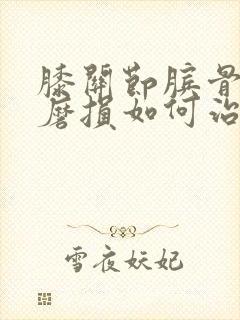 膝關節臏骨
磨損如何治
雪夜妖妃